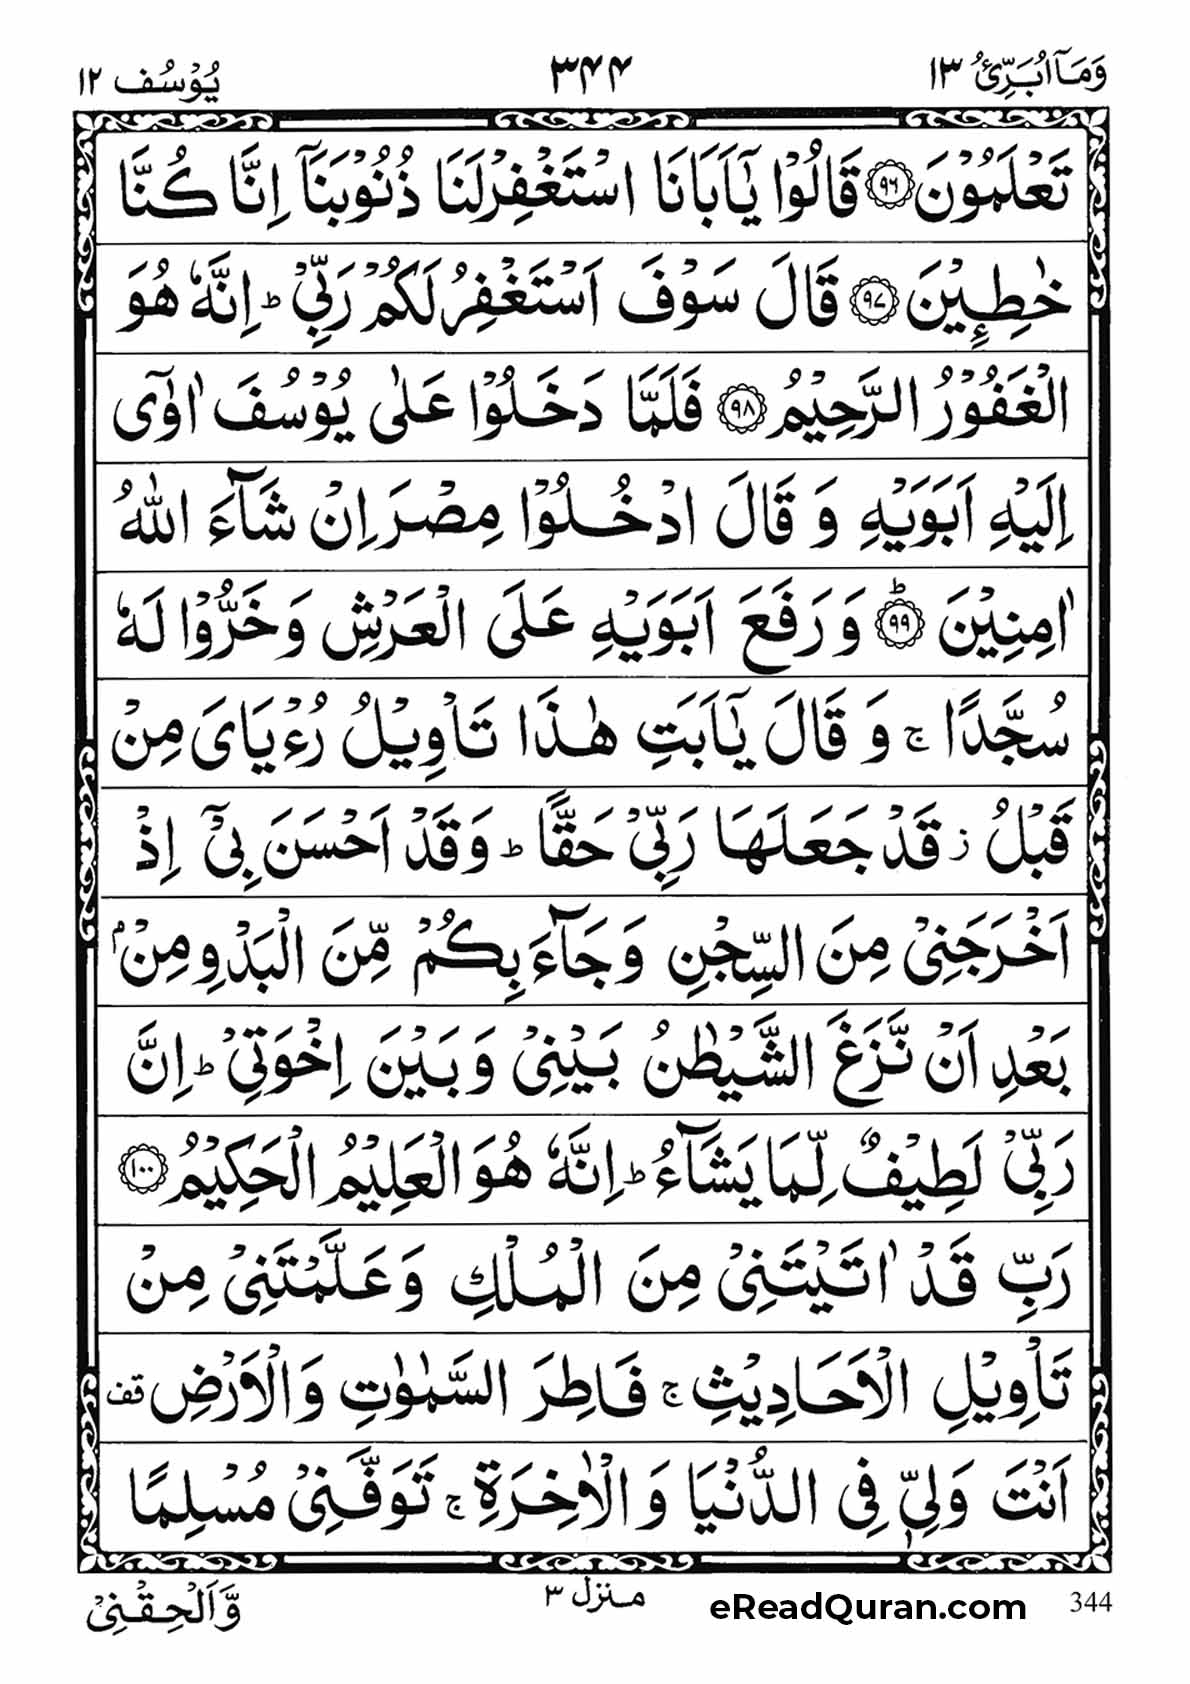 وَمَآ اُبَرِّئُ ١٣ ٣٤٤ يُوْسُف ١٢
تَعْلَمُوْنَ ﴿٩٦﴾ قَالُوْا يٰٓاَبَانَا اسْتَغْفِرْلَنَا ذُنُوْبَنَآ اِنَّا كُنَّا
خٰطِـِٕيْنَ ﴿٩٧﴾ قَالَ سَوْفَ اَسْتَغْفِرُ لَكُمْ رَبِّيْ ؕ اِنَّهٗ هُوَ
الْغَفُوْرُ الرَّحِيْمُ ﴿٩٨﴾ فَلَمَّا دَخَلُوْا عَلٰى يُوْسُفَ اٰوٰٓى
اِلَيْهِ اَبَوَيْهِ وَ قَالَ ادْخُلُوْا مِصْرَ اِنْ شَآءَ اللّٰهُ
اٰمِنِيْنَ ؕ﴿٩٩﴾ وَ رَفَعَ اَبَوَيْهِ عَلَى الْعَرْشِ وَخَرُّوْا لَهٗ
سُجَّدًا ۚ وَ قَالَ يٰٓاَبَتِ هٰذَا تَاْوِيْلُ رُءْيَايَ مِنْ
قَبْلُ ؗ قَدْ جَعَلَهَا رَبِّيْ حَقًّا ؕ وَقَدْ اَحْسَنَ بِيْٓ اِذْ
اَخْرَجَنِيْ مِنَ السِّجْنِ وَجَآءَ بِكُمْ مِّنَ الْبَدْوِ مِنْۢ
بَعْدِ اَنْ نَّزَغَ الشَّيْطٰنُ بَيْنِيْ وَ بَيْنَ اِخْوَتِيْ ؕ اِنَّ
رَبِّيْ لَطِيْفٌ لِّمَا يَشَآءُ ؕ اِنَّهٗ هُوَ الْعَلِيْمُ الْحَكِيْمُ ﴿١٠٠﴾
رَبِّ قَدْ اٰتَيْتَنِيْ مِنَ الْمُلْكِ وَعَلَّمْتَنِيْ مِنْ
تَاْوِيْلِ الْاَحَادِيْثِ ۚ فَاطِرَ السَّمٰوٰتِ وَالْاَرْضِ قف
اَنْتَ وَلِيّٖ فِي الدُّنْيَا وَ الْاٰخِرَةِ ۚ تَوَفَّنِيْ مُسْلِمًا
وَّاَلْحِقْنِيْ منزل ٣ eReadQuran.com 344